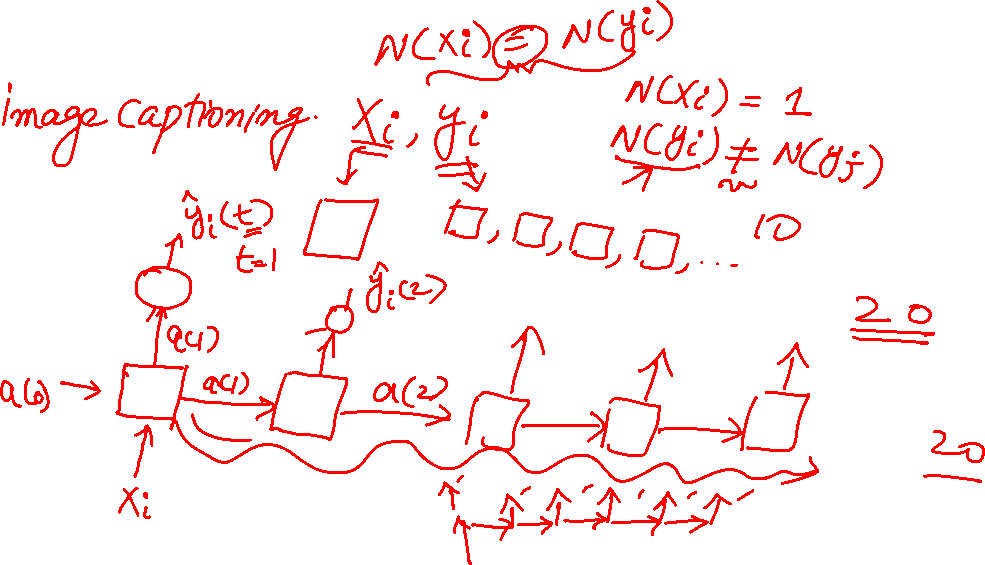 N(xi) = N(yi)
image captioning. xi, yi
N(xi) = 1
N(yi) ≠ N(yj)
ŷi(t)
t=1
, , , , ...
10
ŷi(2)
20
a(1)
a(0)
a(1)
a(2)
20
xi